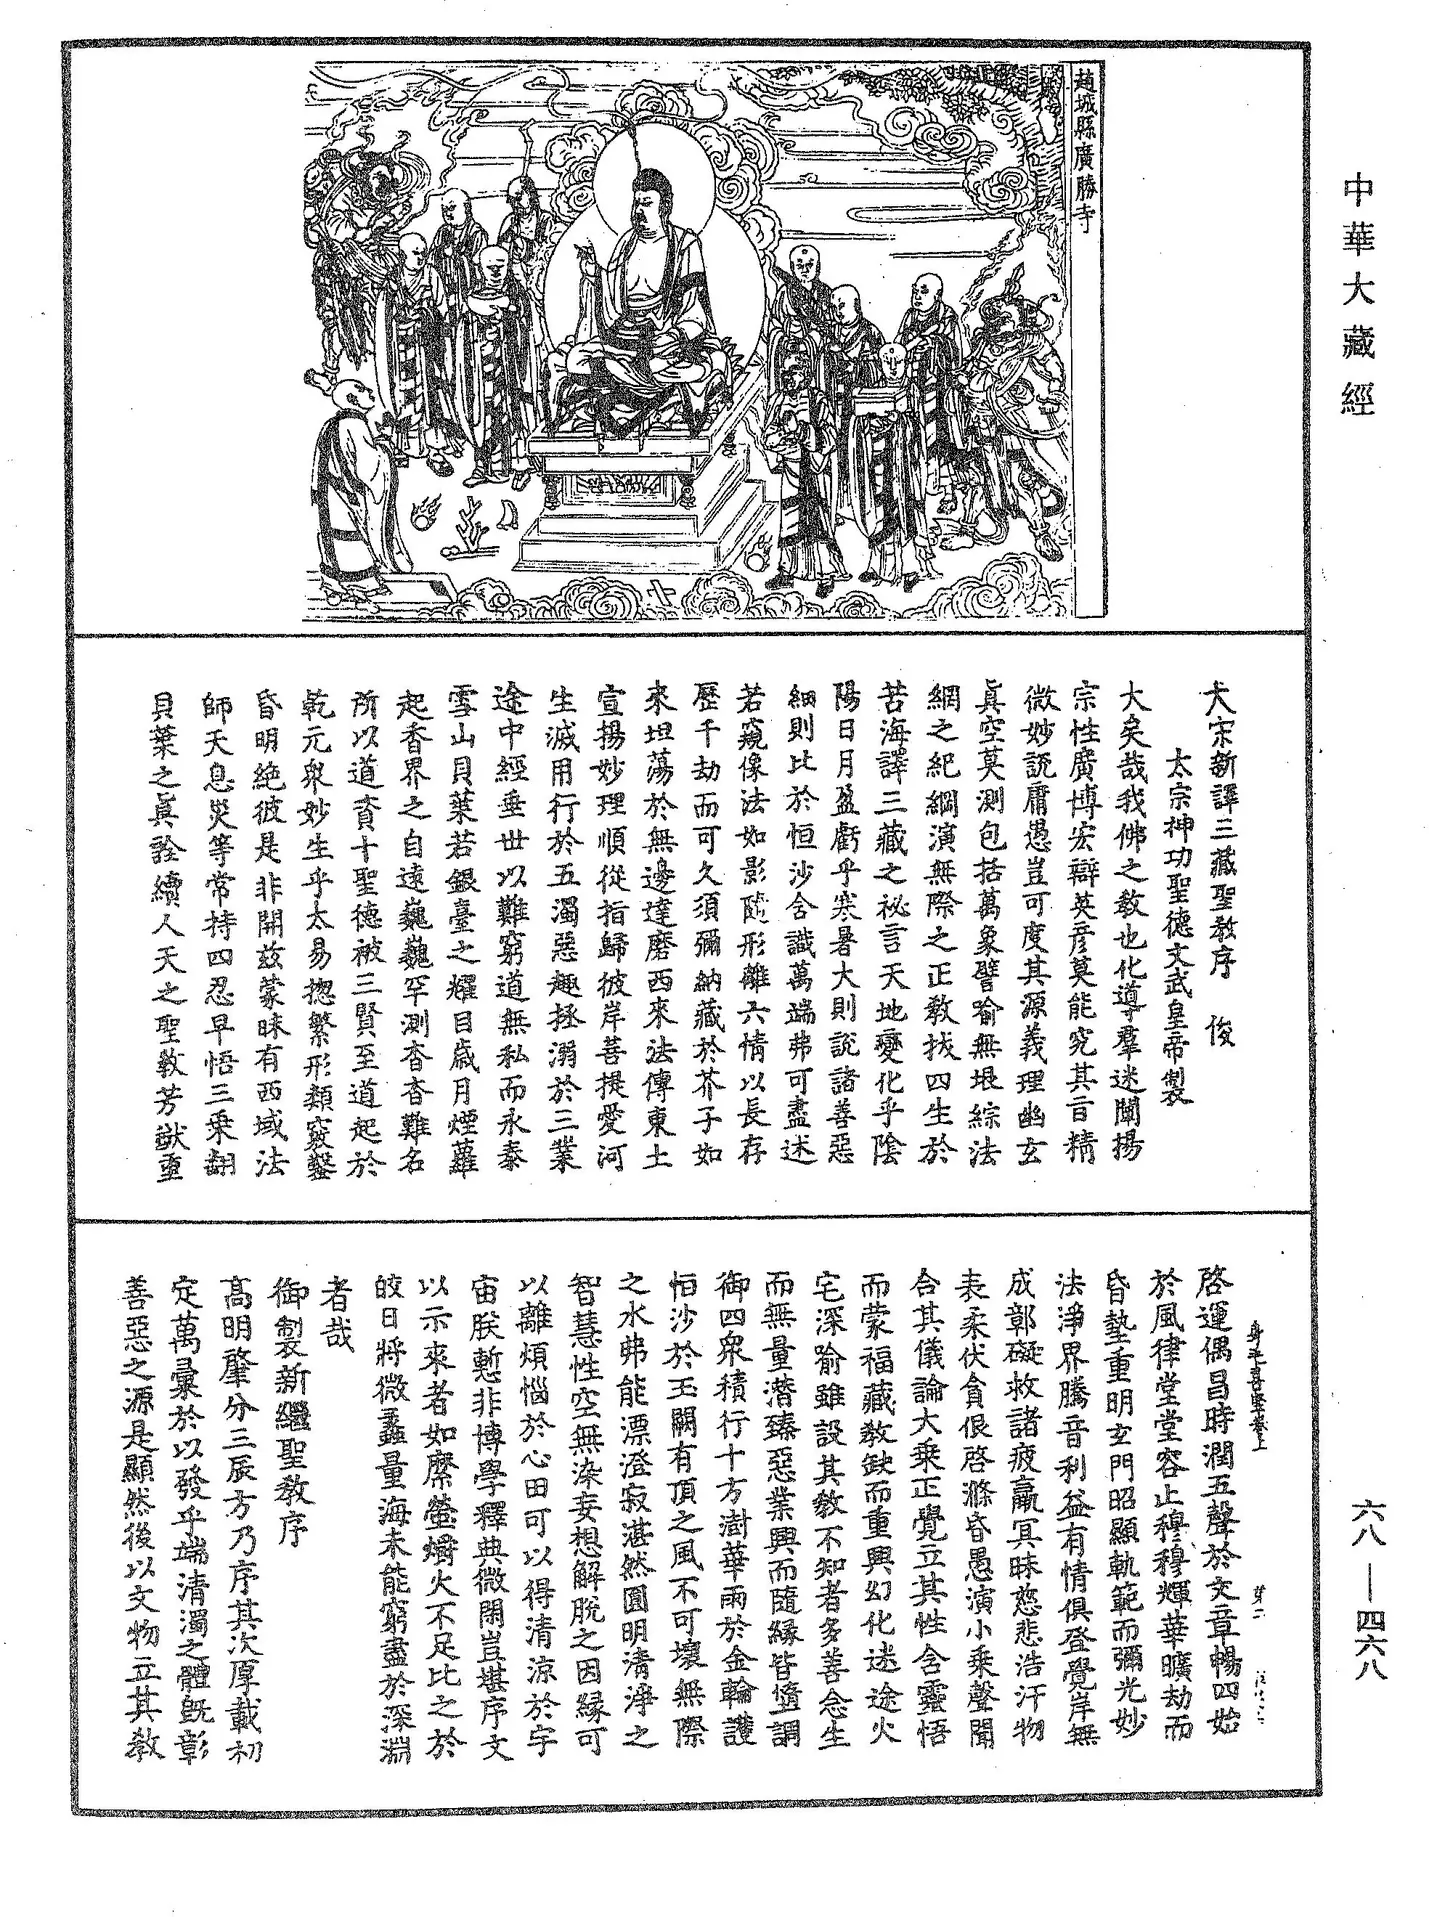 中華大藏經
趙城縣廣勝寺
大宋新譯三藏聖教序　俊
太宗神功聖德文武皇帝製
大矣哉我佛之教也化導羣迷闡揚
宗性廣博宏辯英彥莫能究其旨精
微妙說庸愚豈可度其源義理幽玄
真空莫測包括萬象譬喻無垠綜法
網之紀綱演無際之正教拔四生於
苦海譯三藏之祕言天地變化乎陰
陽日月盈虧乎寒暑大則說諸善惡
細則比於恒沙含識萬端弗可盡述
若窺像法如影隨形離六情以長存
歷千劫而可久須彌納藏於芥子如
來坦蕩於無邊達磨西來法傳東土
宣揚妙理順從指歸彼岸菩提愛河
生滅用行於五濁惡趣拯溺於三業
途中經垂世以難窮道無私而永泰
雪山貝葉若銀臺之耀目歲月煙蘿
起香界之自遠巍巍罕測杳杳難名
所以道資十聖德被三賢至道起於
乾元衆妙生乎太易揔繁形類竅鑿
昏明絶彼是非開茲蒙昧有西域法
師天息災等常持四忍早悟三乘翻
貝葉之真詮續人天之聖教芳猷重
啓運偶昌時潤五聲於文章暢四始
於風律堂堂容止穆穆輝華曠劫而
昏墊重明玄門昭顯軌範而彌光妙
法淨界騰音利益有情俱登覺岸無
成彰礙救諸疲羸冥昧慈悲浩汗物
表柔伏貪佷啓滌昏愚演小乘聲聞
合其儀論大乘正覺立其性含靈悟
而蒙福藏教缺而重興幻化迷途火
宅深喻雖設其教不知者多善念生
而無量潛臻惡業興而隨緣皆墮調
御四衆積行十方澍華雨於金輪護
恒沙於玉闕有頂之風不可壞無際
之水弗能漂澄寂湛然圓明清淨之
智慧性空無染妄想解脫之因緣可
以離煩惱於心田可以得清涼於宇
宙朕慙非博學釋典微閑豈堪序文
以示來者如縻螢爝火不足比之於
皎日將微蠡量海未能窮盡於深淵
者哉
御製新繼聖教序
高明肇分三辰方乃序其次厚載初
定萬彙於以發乎端清濁之體旣彰
善惡之源是顯然後以文物立其教
六八—四六八